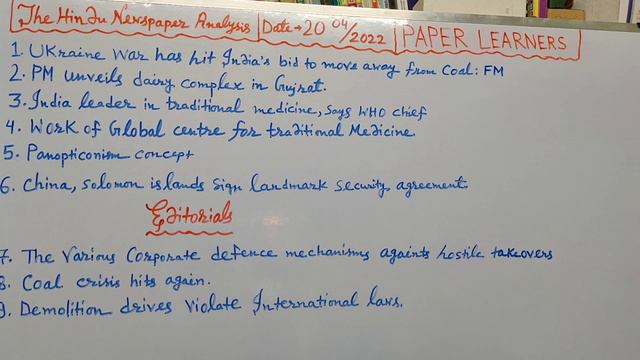 The Hindu Newspaper Analysis | Date→20 04/2022 | PAPER LEARNERS
1. Ukraine war has hit India's bid to move away from Coal: FM
2. PM unveils dairy complex in Gujrat.
3. India leader in traditional medicine, says WHO chief
4. Work of Global centre for traditional Medicine.
5. Panopticonism concept
6. China, Solomon islands sign landmark security agreement.
Editorials
7. The Various Corporate defence mechanisms againts hostile takeovers
8. Coal crisis hits again.
9. Demolition drives violate International laws.